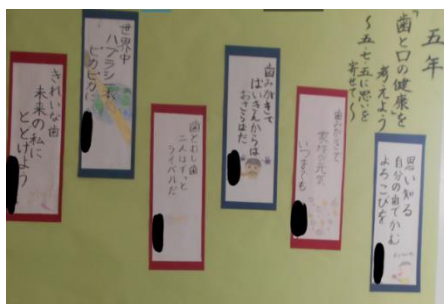 五年
「歯と口の健康を
考えよう
〜五・七・五に思いを
寄せて〜」
思い知る
自分の歯でかむ
よろこびを
歯みがきで
いつまでも
歯みがきで
ばいきんからは
おさらばだ
歯とむし歯
二人はずっと
ライバルだ
世界中
ハブラシ
ピカピカに
きれいな歯
未来の私に
とどけよう